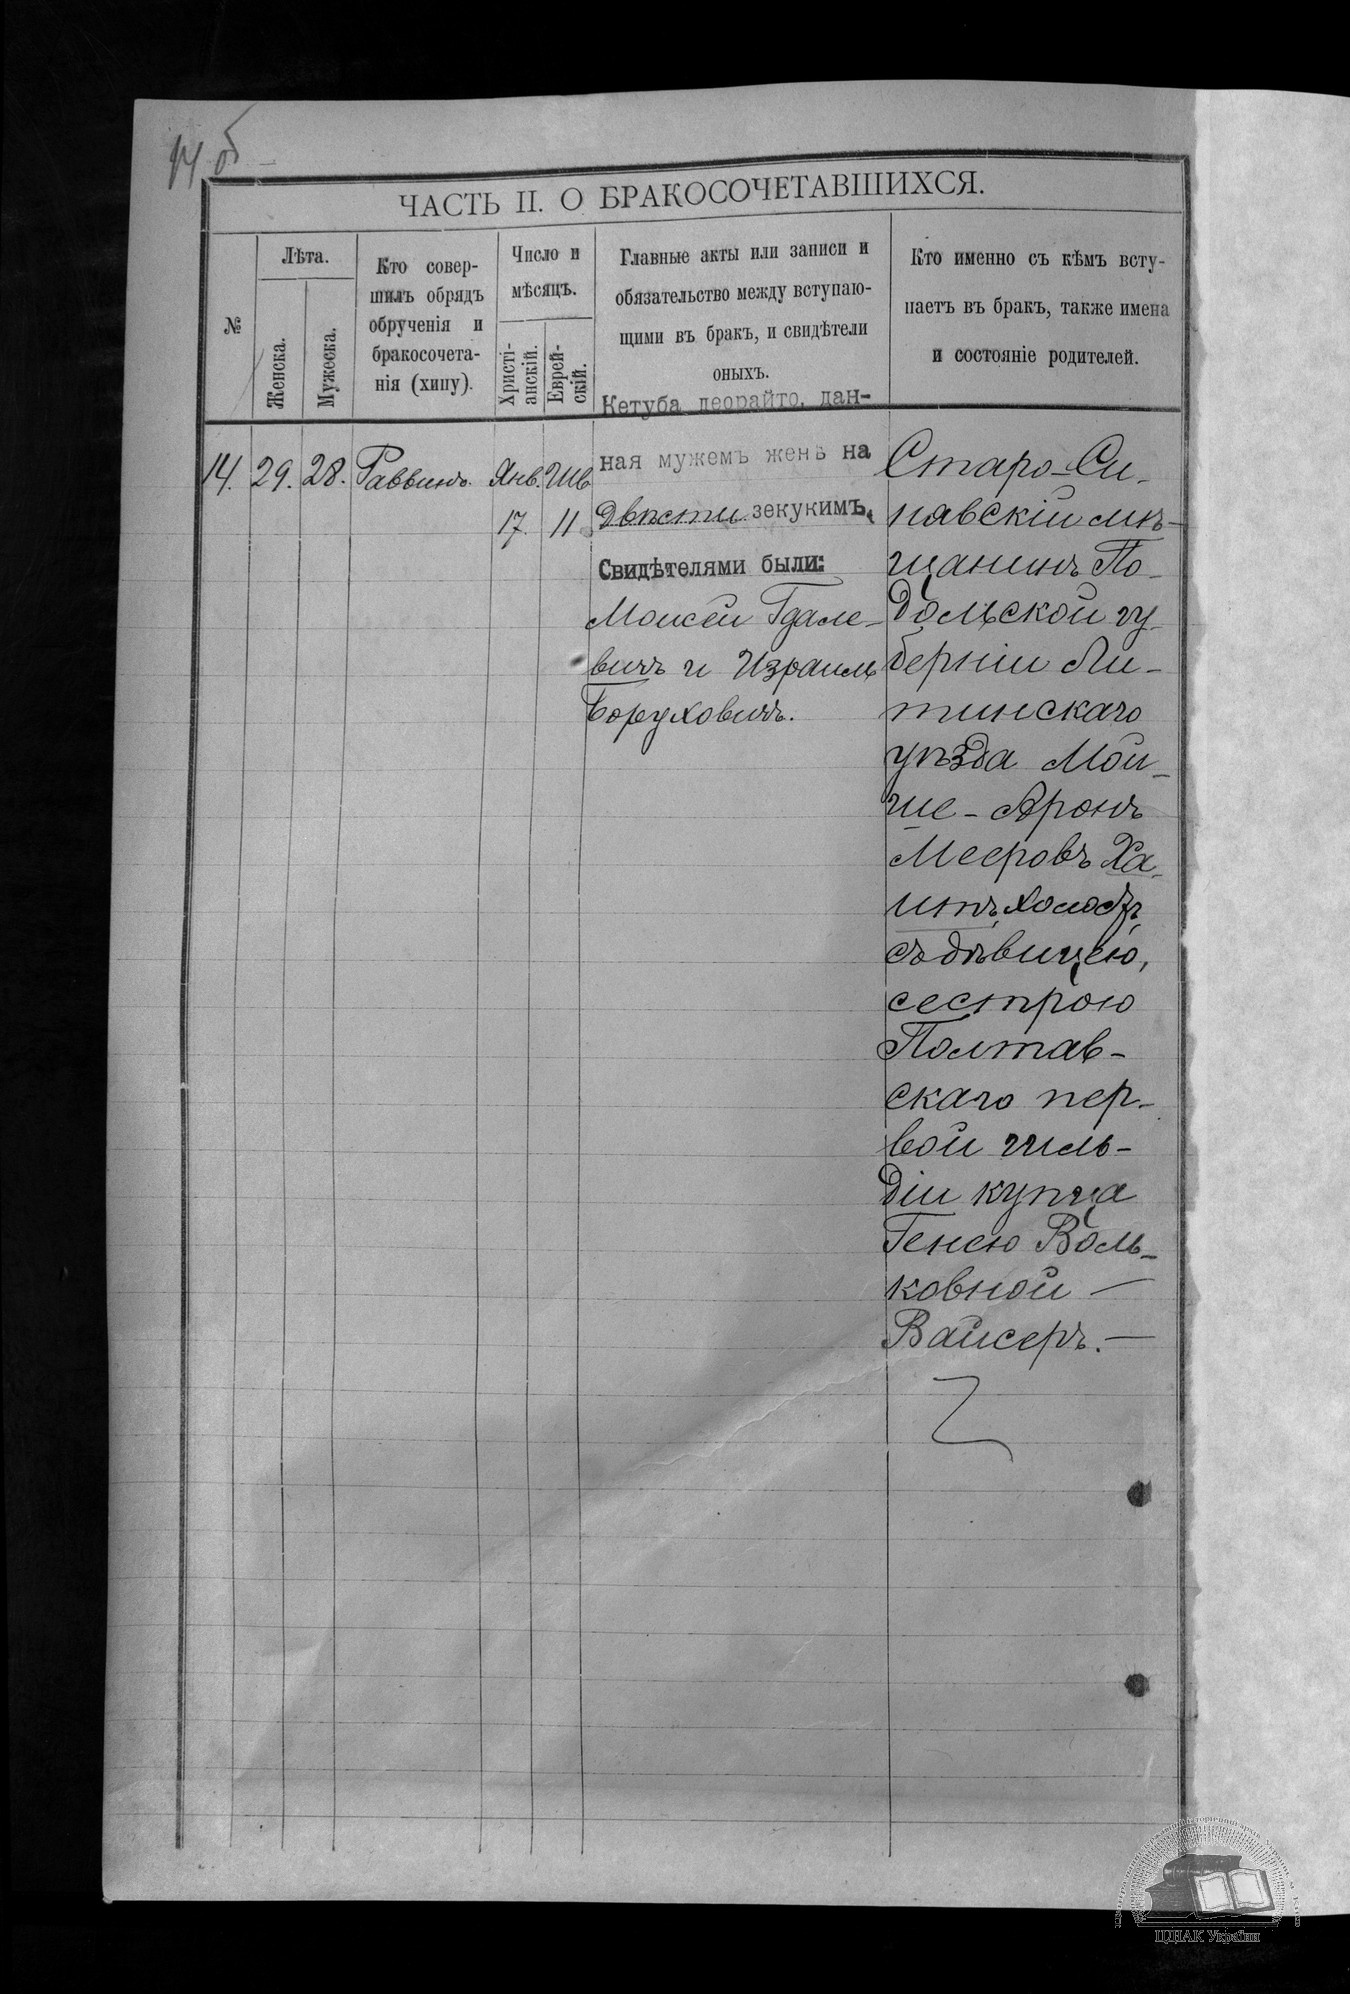 14 об
ЧАСТЬ II. О БРАКОСОЧЕТАВШИХСЯ.
№
Лѣта.
Женска.
Мужеска.
Кто совер-
шилъ обрядъ
обрученія и
бракосочета-
нія (хипу).
Число и
мѣсяцъ.
Христі-
анскій.
Еврей-
скій.
Главные акты или записи и
обязательство между вступаю-
щими въ бракъ, и свидѣтели
оныхъ.
Кто именно съ кѣмъ всту-
паетъ въ бракъ, также имена
и состояніе родителей.
14.
29.
28.
Раввинъ.
Янв.
17.
Шв.
11
Кетуба деорайто, дан-
ная мужемъ женѣ на
Двѣсти зекукимъ.
Свидѣтелями были:
Моисей Гдале-
вичъ и Израиль
Боруховичъ.
Старо-Си-
нявскій мѣ-
щанинъ По-
дольской гу-
берніи Ли-
тинскаго
уѣзда Мой-
ше-Аронъ
Мееровъ Ха-
итъ, холостъ,
съ дѣвицею,
сестрою
Полтав-
скаго пер-
вой гиль-
діи купца
Генею Воль-
ковной —
Вайсеръ. —
ЦДІАК України